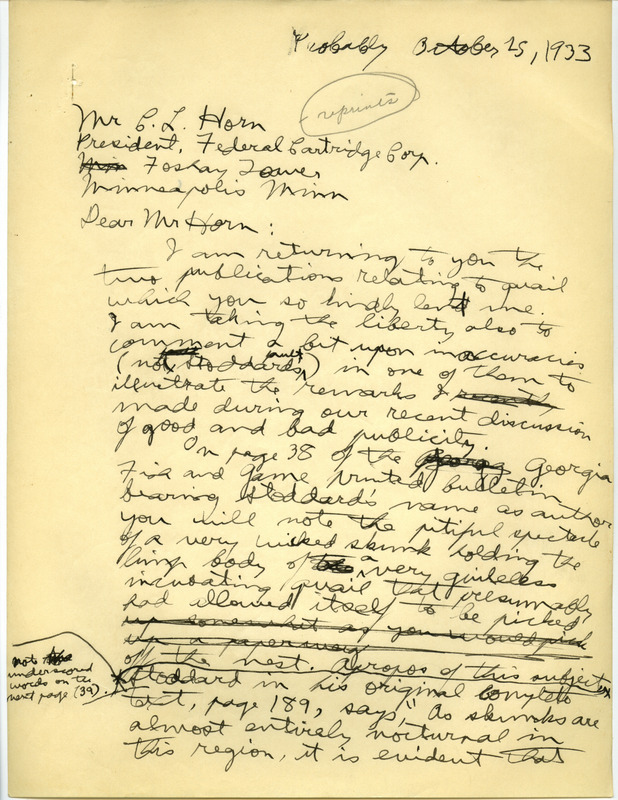 Probably October 25, 1933
reprints
Mr C. L. Horn
President, Federal Cartridge Corp.
Foshay Tower
Minneapolis Minn
Dear Mr Horn:
I am returning to you the
two publications relating to quail
which you so kindly lent me.
I am taking the liberty also to
comment a bit upon inaccuracies
(not Stoddard's fault) in one of them to
illustrate the remarks I
made during our recent discussion
of good and bad publicity.
On page 38 of the Georgia
Fish and Game printed bulletin
bearing Stoddard's name as author
you will note the pitiful spectacle
of a very wicked skunk holding the
limp body of a very guileless
incubating quail that presumably
had allowed itself to be picked
up somewhat as you would pick
up a paperwad
off the nest. Apropos of this subject
Stoddard in his original complete
text, page 189, says, "As skunks are
almost entirely nocturnal in
this region, it is evident that
note
underscored
words on the
next page (39).